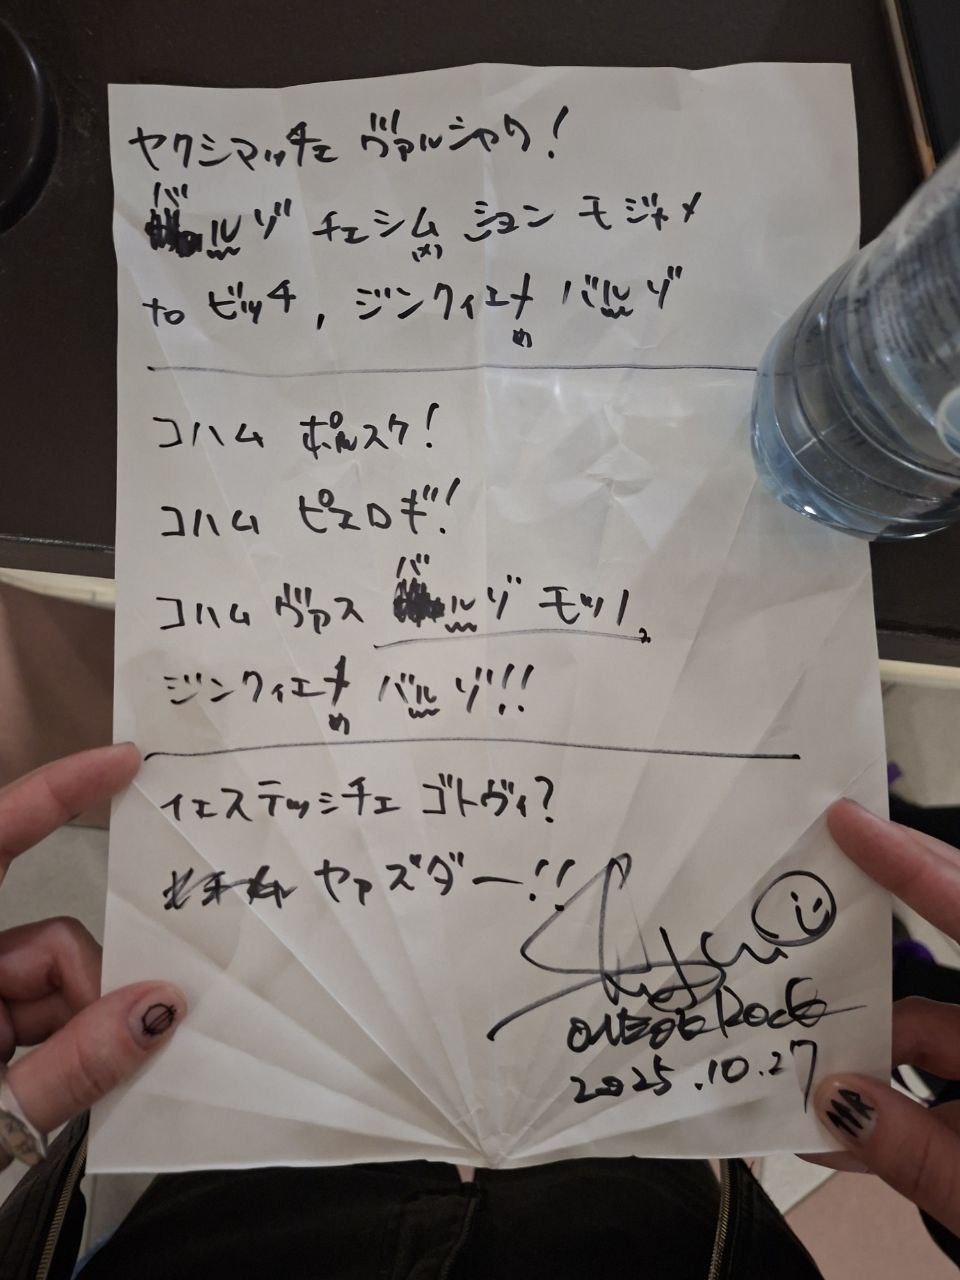 ヤクシマッチェ ヴァルシャヴ!
バルゾ チェシム ション モジャメ
(メ)
to ビッチ, ジンクィエメ バルゾ
め
コハム ポルスケ!
コハム ピエロギ!
コハム ヴァス バルゾ モツノ。
ジンクィエメ バルゾ!!
め
イェステッシチェ ゴトヴィ?
ヤァズダー!!
ONE OK ROCK
2025.10.27